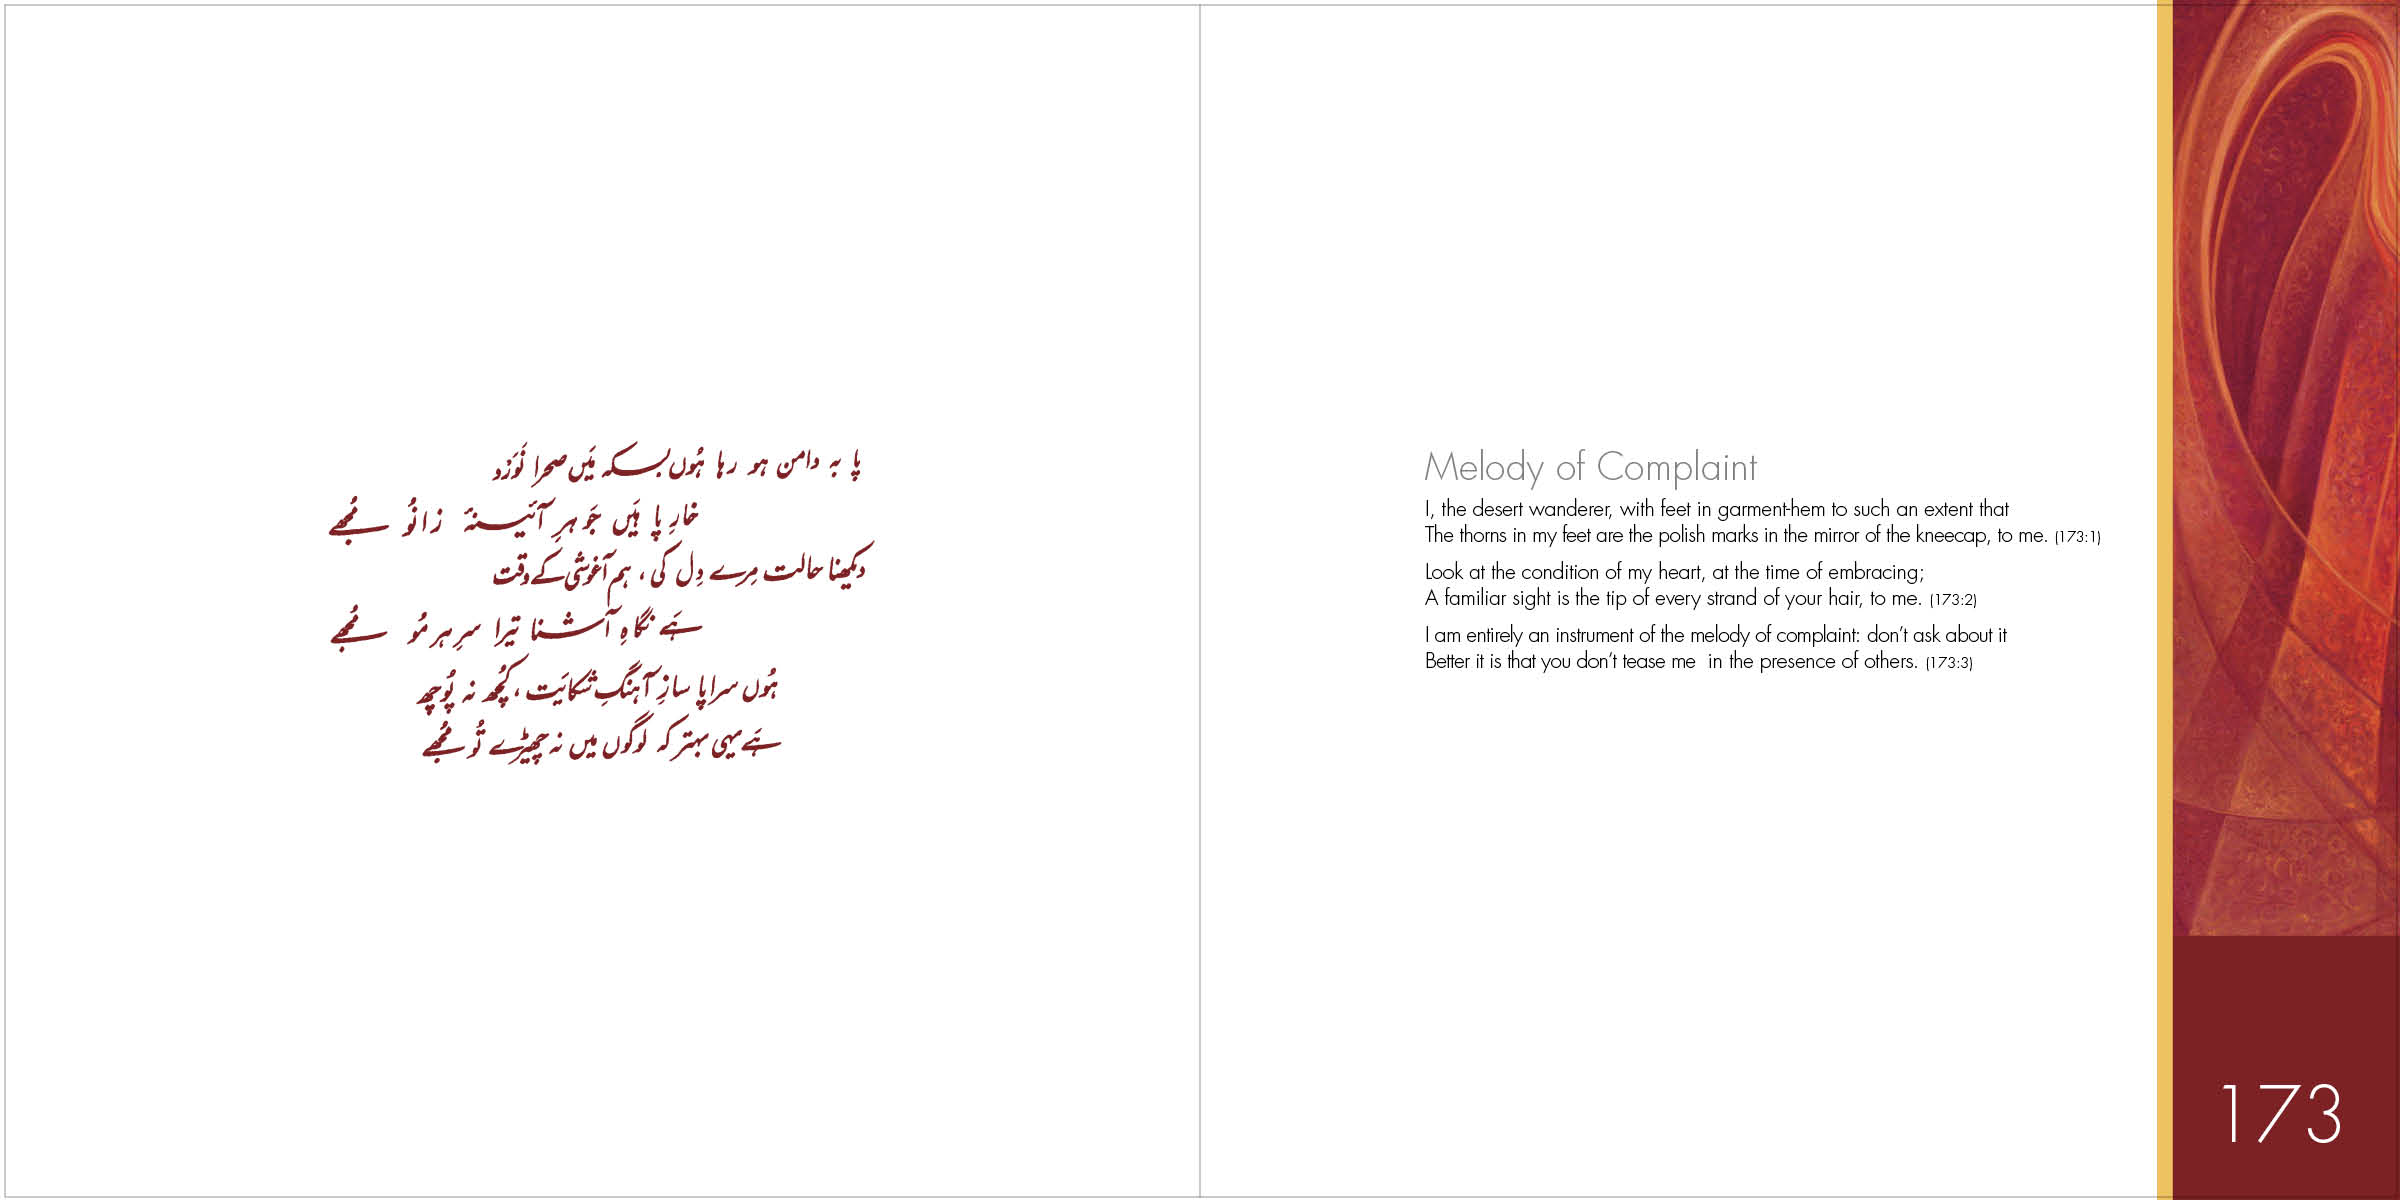 پا بہ دامن ہو رہا ہُوں بسکہ مَیں صحرا نَوَرْد
خارِ پا ہَیں جَوہرِ آئینۂ زانُو مُجھے
دیکھنا حالت مِرے دِل کی، ہم آغوشی کے وقت
ہَے نگاہِ آشنا تیرا سرِ ہر مُو مُجھے
ہُوں سراپا سازِ آہنگِ شکایَت، کُچھ نہ پُوچھ
ہَے یہی بہتر کہ لوگوں میں نہ چھیڑے تُو مُجھے
Melody of Complaint
I, the desert wanderer, with feet in garment-hem to such an extent that
The thorns in my feet are the polish marks in the mirror of the kneecap, to me. (173:1)
Look at the condition of my heart, at the time of embracing;
A familiar sight is the tip of every strand of your hair, to me. (173:2)
I am entirely an instrument of the melody of complaint: don’t ask about it
Better it is that you don’t tease me  in the presence of others. (173:3)
173